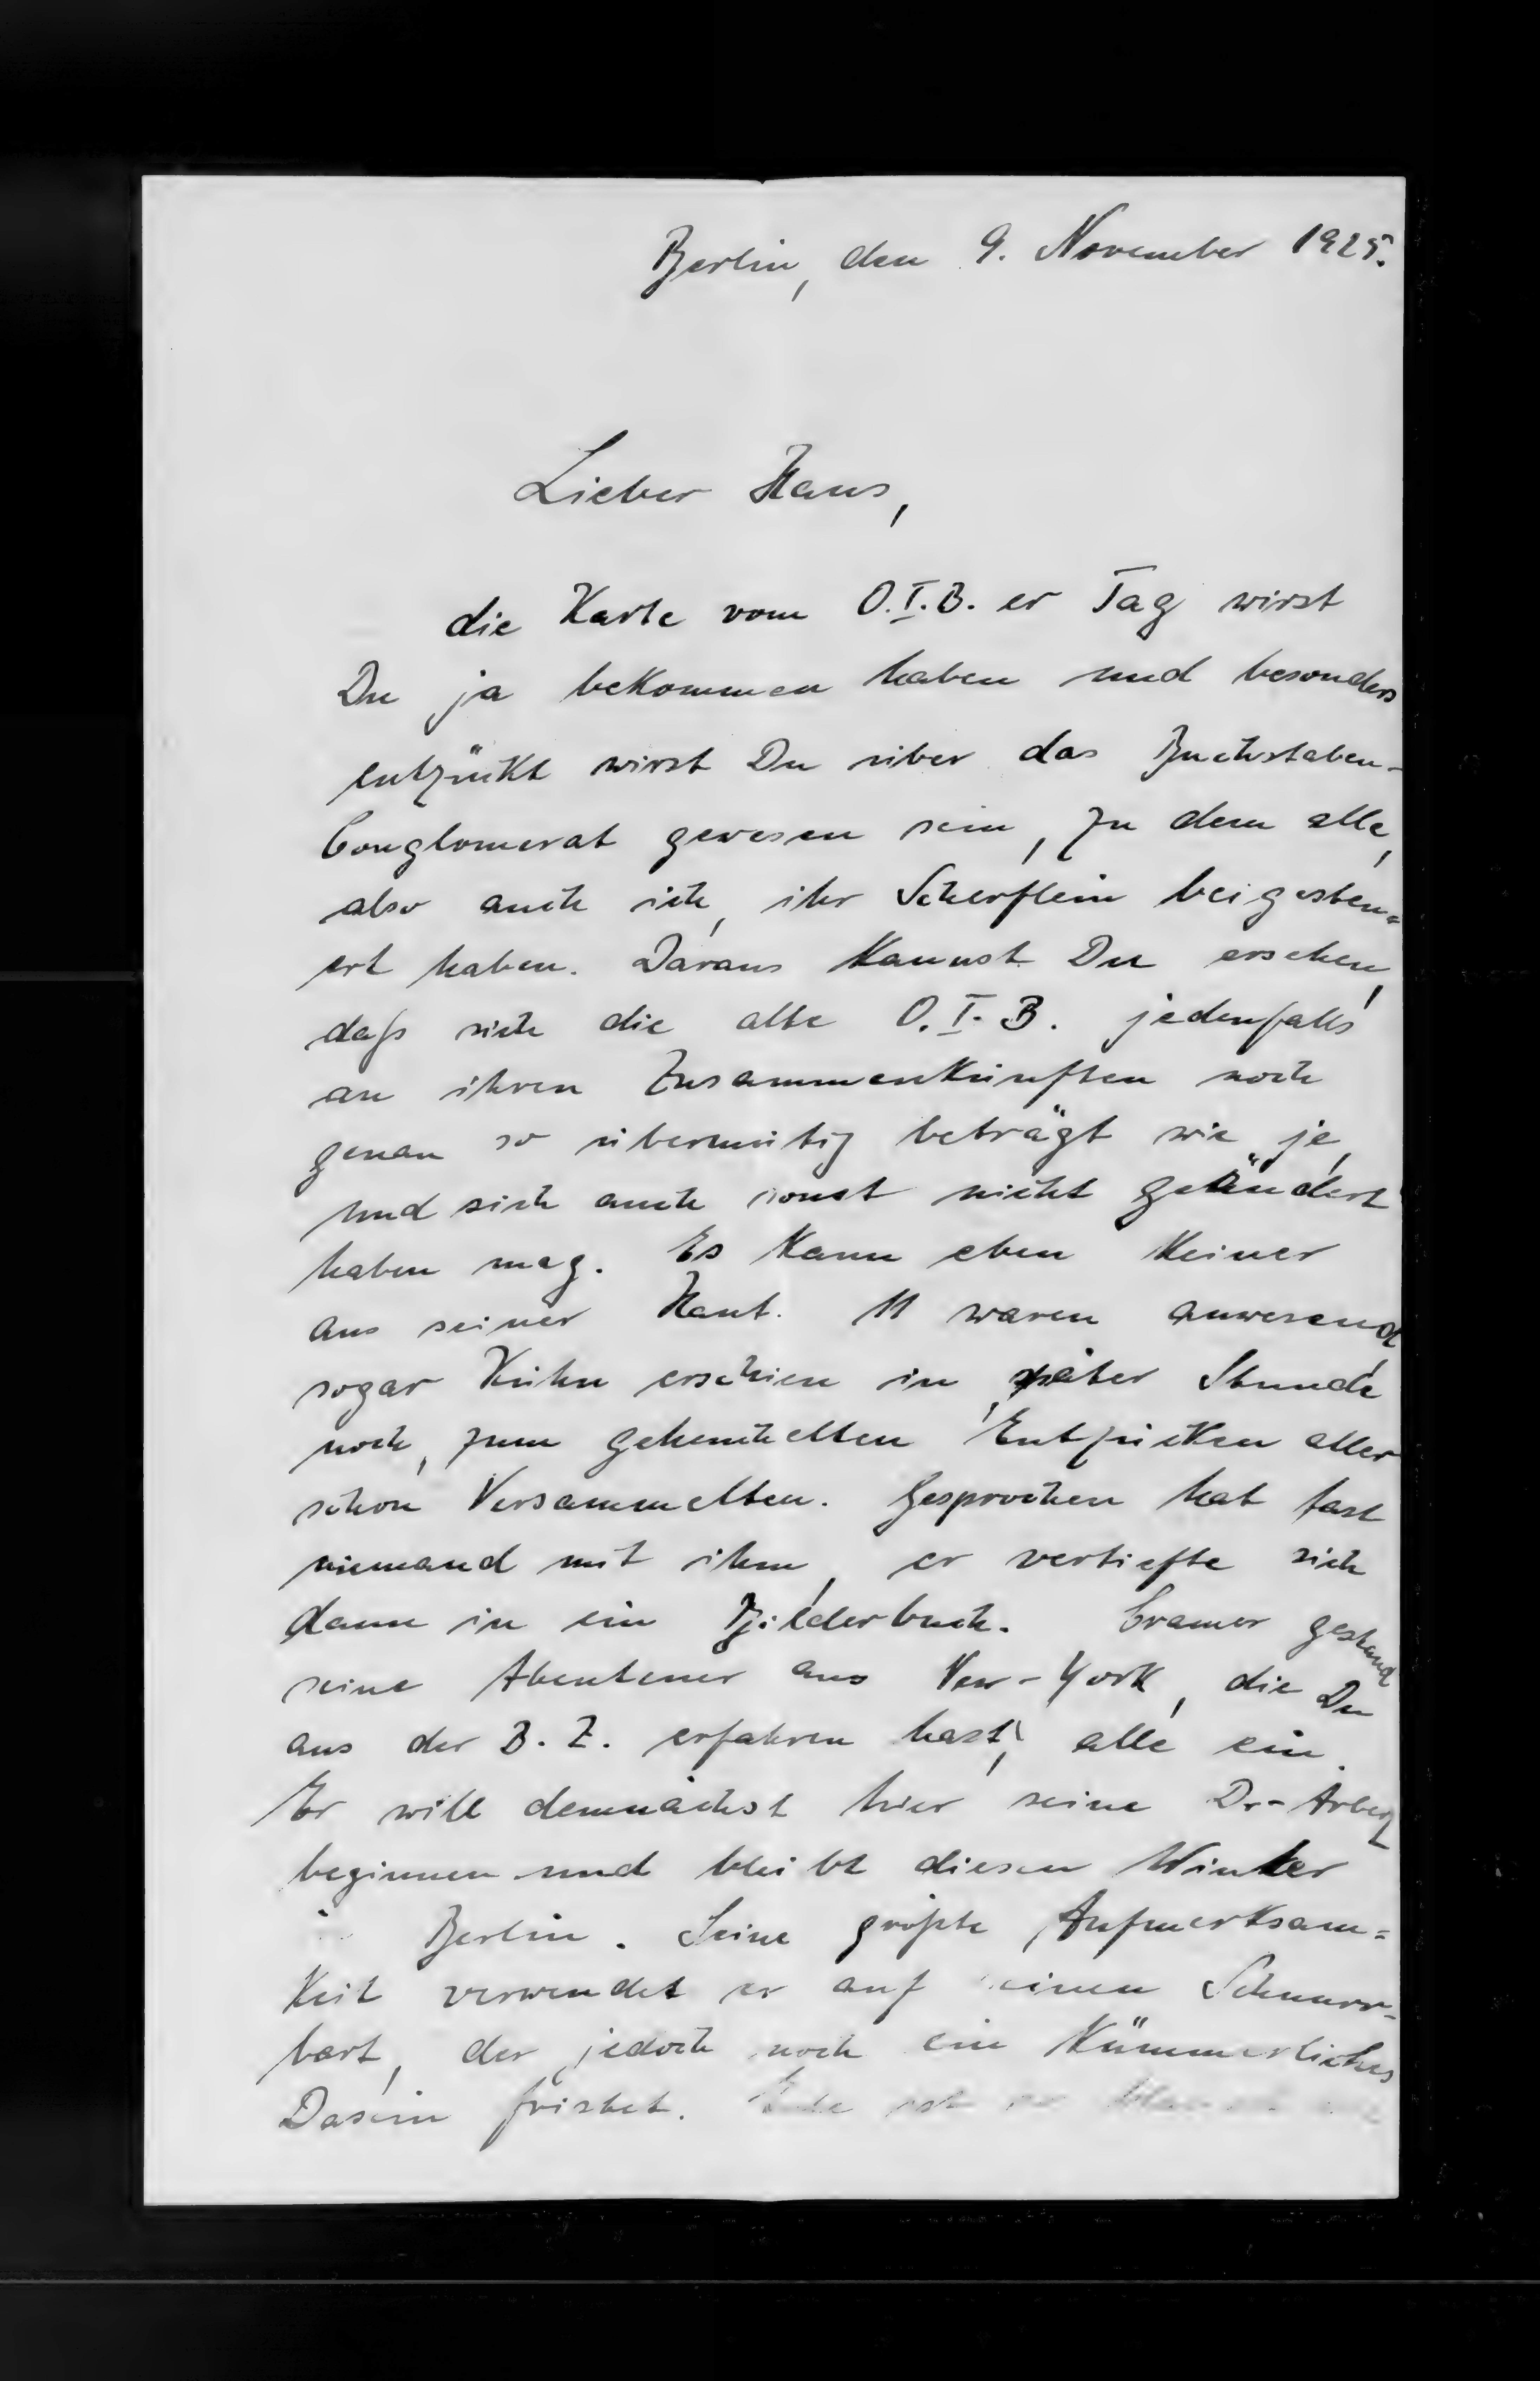 Berlin, den 9. November 1925.
Lieber Hans,
die Karte vom O.I.B. er Tag wirst
Du ja bekommen haben und besonders
entzückt wirst Du über das Buchstaben-
Conglomerat gewesen sein, zu dem alle,
also auch ich, ihr Scherflein beigesteu=
ert haben. Daraus kannst Du ersehen,
daß sich die alte O.I.B. jedenfalls
an ihren Zusammenkünften noch
genau so übermütig beträgt wie je,
und sich auch sonst nicht geändert
haben mag. Es kann eben keiner
aus seiner Haut. 11 waren anwesend,
sogar Kühn erschien in später Stunde
noch, zum geheuchelten Entzücken aller
schon Versammelten. Gesprochen hat fast
niemand mit ihm, er vertiefte sich
dann in ein Bilderbuch. Cramer gestand
seine Abenteuer aus New-York, die Du
aus der B.Z. erfahren hast, alle ein.
Er will demnächst hier seine Dr-Arbeit
beginnen und bleibt diesen Winter
Berlin. Seine größte Aufmerksam=
keit verwendet er auf seinen Schnurr-
bart, der jedoch noch ein kümmerliches
Dasein fristet.